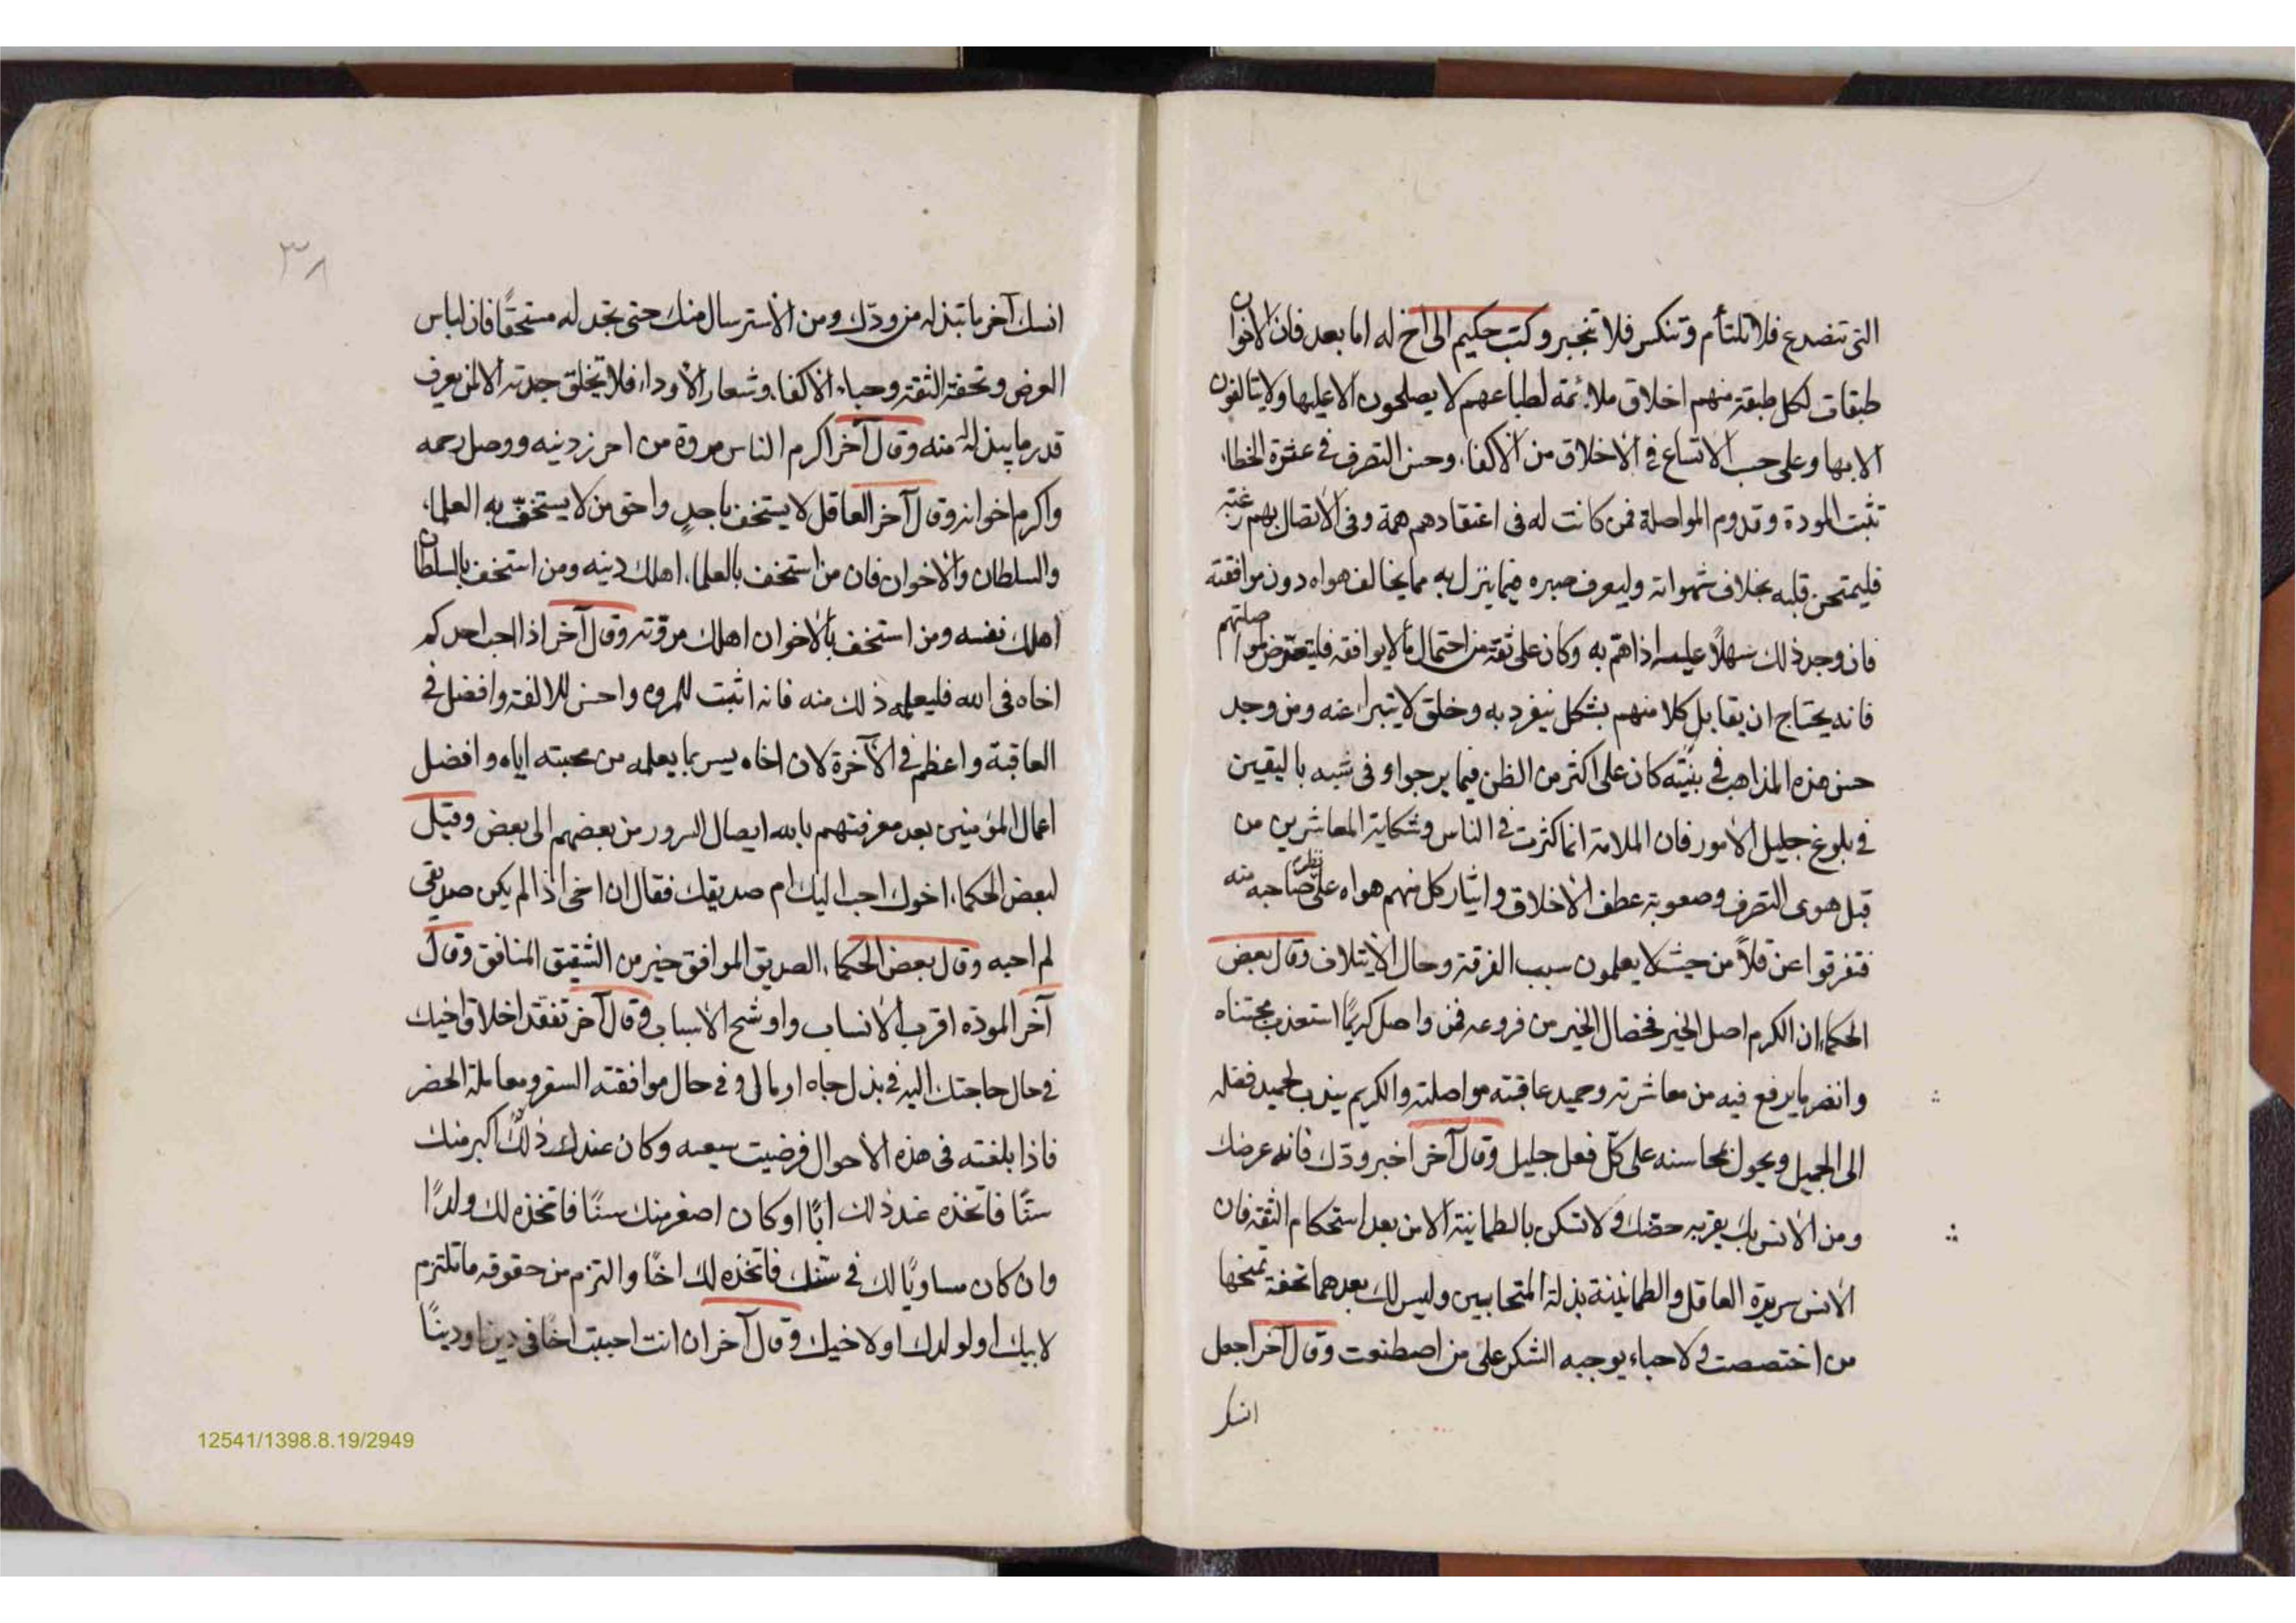 التى تنصدع فلا تلتأم وتنكسر فلا تنجبر وكتب حكيم الى اخ له اما بعد فان الاخوان
طبقات لكل طبقة منهم اخلاق ملائمة لطباعهم لا يصلحون الا عليها ولا يتالفون
الا بها وعلى حسب الاتساع فى الاخلاق من الاكفاء وحسن التصرف فى عشرة الخطاء
تثبت المودة وتدوم المواصلة فمن كانت له فى اعتقادهم همة وفى الاتصال بهم رغبة
فليمتحن قلبه بخلاف شهواته وليعرف صبره فيما ينزل به مما يخالف هواه دون موافقته
فان وجد ذلك سهلاً عليه اذا هم به وكان على ثقة من احتمال ما لا يوافقه فليتعرّض لمواصلتهم
فانه يحتاج ان يقابل كلا منهم بشكل ينفرد به وخلق لا يتبرا عنه ومن وجد
حسن هذه المذاهب فى بنيته كان على اكثر من الظن فيما يرجوا وفى شبه باليقين
فى بلوغ جليل الامور فان الملامة انما كثرت فى الناس وشكاية المعاشرين من
قبل هوى التصرف وصعوبة عطف الاخلاق وايثار كل منهم هواه على صاحبه منه
فتفرقوا عن قلاً من حيث لا يعلمون سبب الفرقة وحال الايتلاف وقال بعض
الحكماء ان الكرم اصل الخير فخصال الخير من فروعه فمن واصل كريمًا استعذب مجتناه
وانضر ما يرفع فيه من معاشرته وحميد عاقبته مواصلته والكريم يندب لحميد فعله
الى الجميل ويحول بمحاسنه على كلّ فعل جليل وقال آخر اخبر ودّك فانه عرضك
ومن الانس بك يعزبه حصّتك ولا تسكن بالطمانينة الا من بعد استحكام الثقة فان
الانس سريرة العاقل والطمانينة بذلة المتحابيين وليس لك بعدهما تحفة تمنحها
من اختصصت ولا حباء يوجبه الشكر على من اصطنعت وقال آخر اجعل
انسك
٣٨
انسك آخر ما تبذله من ودّك ومن الاسترسال منك حتى تجد له مستحقًا فان لباس
العرض وتحفة الثقة وحباء الاكفاء وشعار الاوداء فلا تخلق جدته الا لمن يعرف
قدر ما يبذل له منه وقال آخر اكرم الناس مروة من احرز دينه ووصل رحمه
واكرم اخوانه وقال آخر العاقل لا يستخف باحدٍ واحق من لا يستخفّ به العلماء
والسلطان والاخوان فان من استخف بالعلماء اهلك دينه ومن استخف بالسلطان
اهلك نفسه ومن استخف بالاخوان اهلك مروّته وقال آخر اذا احب احدكم
اخاه فى الله فليعلمه ذلك منه فانه اثبت للمروه واحسن للالفة وافضل فى
العاقبة واعظم فى الآخرة لان اخاه يسر بما يعلمه من محبته اياه وافضل
اعمال المؤمنين بعد معرفتهم بالله ايصال السرور من بعضهم الى بعض وقيل
لبعض الحكماء اخوك احب اليك ام صديقك فقال ان اخى اذا لم يكن صديقى
لم احبه وقال بعض الحكماء الصديق الموافق خير من الشقيق المنافق وقال
آخر المودّه اقرب الانساب واوشح الاسباب وقال آخر تفقّد اخلاق اخيك
فى حال حاجتك اليه فى بذل جاه او مال وفى حال موافقته السفر ومعاملة الحضر
فاذا بلغته فى هذه الاحوال فرضيت سيعه وكان عندك ذلك اكبر منك
سنًّا فاتخذه عند ذلك ابًا او كان اصغر منك سنًا فاتخذه لك ولدًا
وان كان مساويًا لك فى سنك فاتخذه لك اخًا والتزم من حقوقه ما تلتزم
لابيك او لولدك او لاخيك وقال آخر ان انت احببت اخًا فى دين اودينًا
12541/1398.8.19/2949